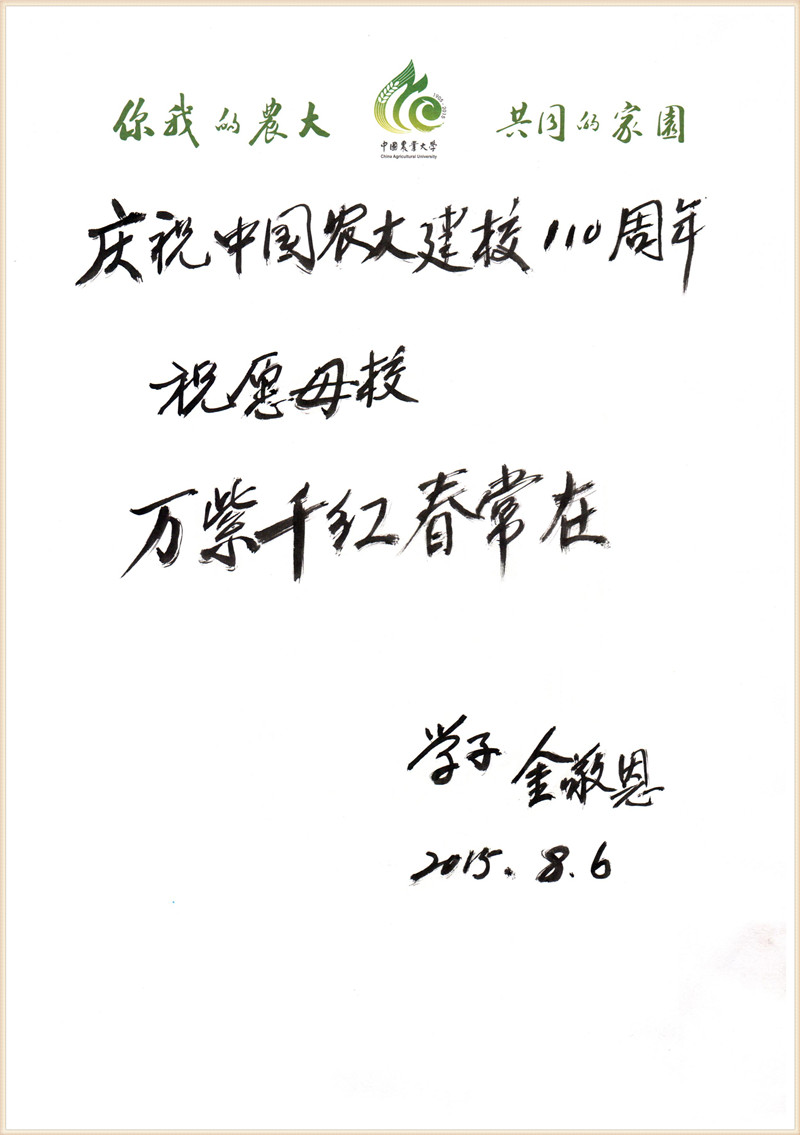 你我的農大 共同的家園
1905-2015
中國農業大學
China Agricultural University
庆祝中国农大建校110周年
祝愿母校
万紫千红春常在
学子 金敬恩
2015.8.6